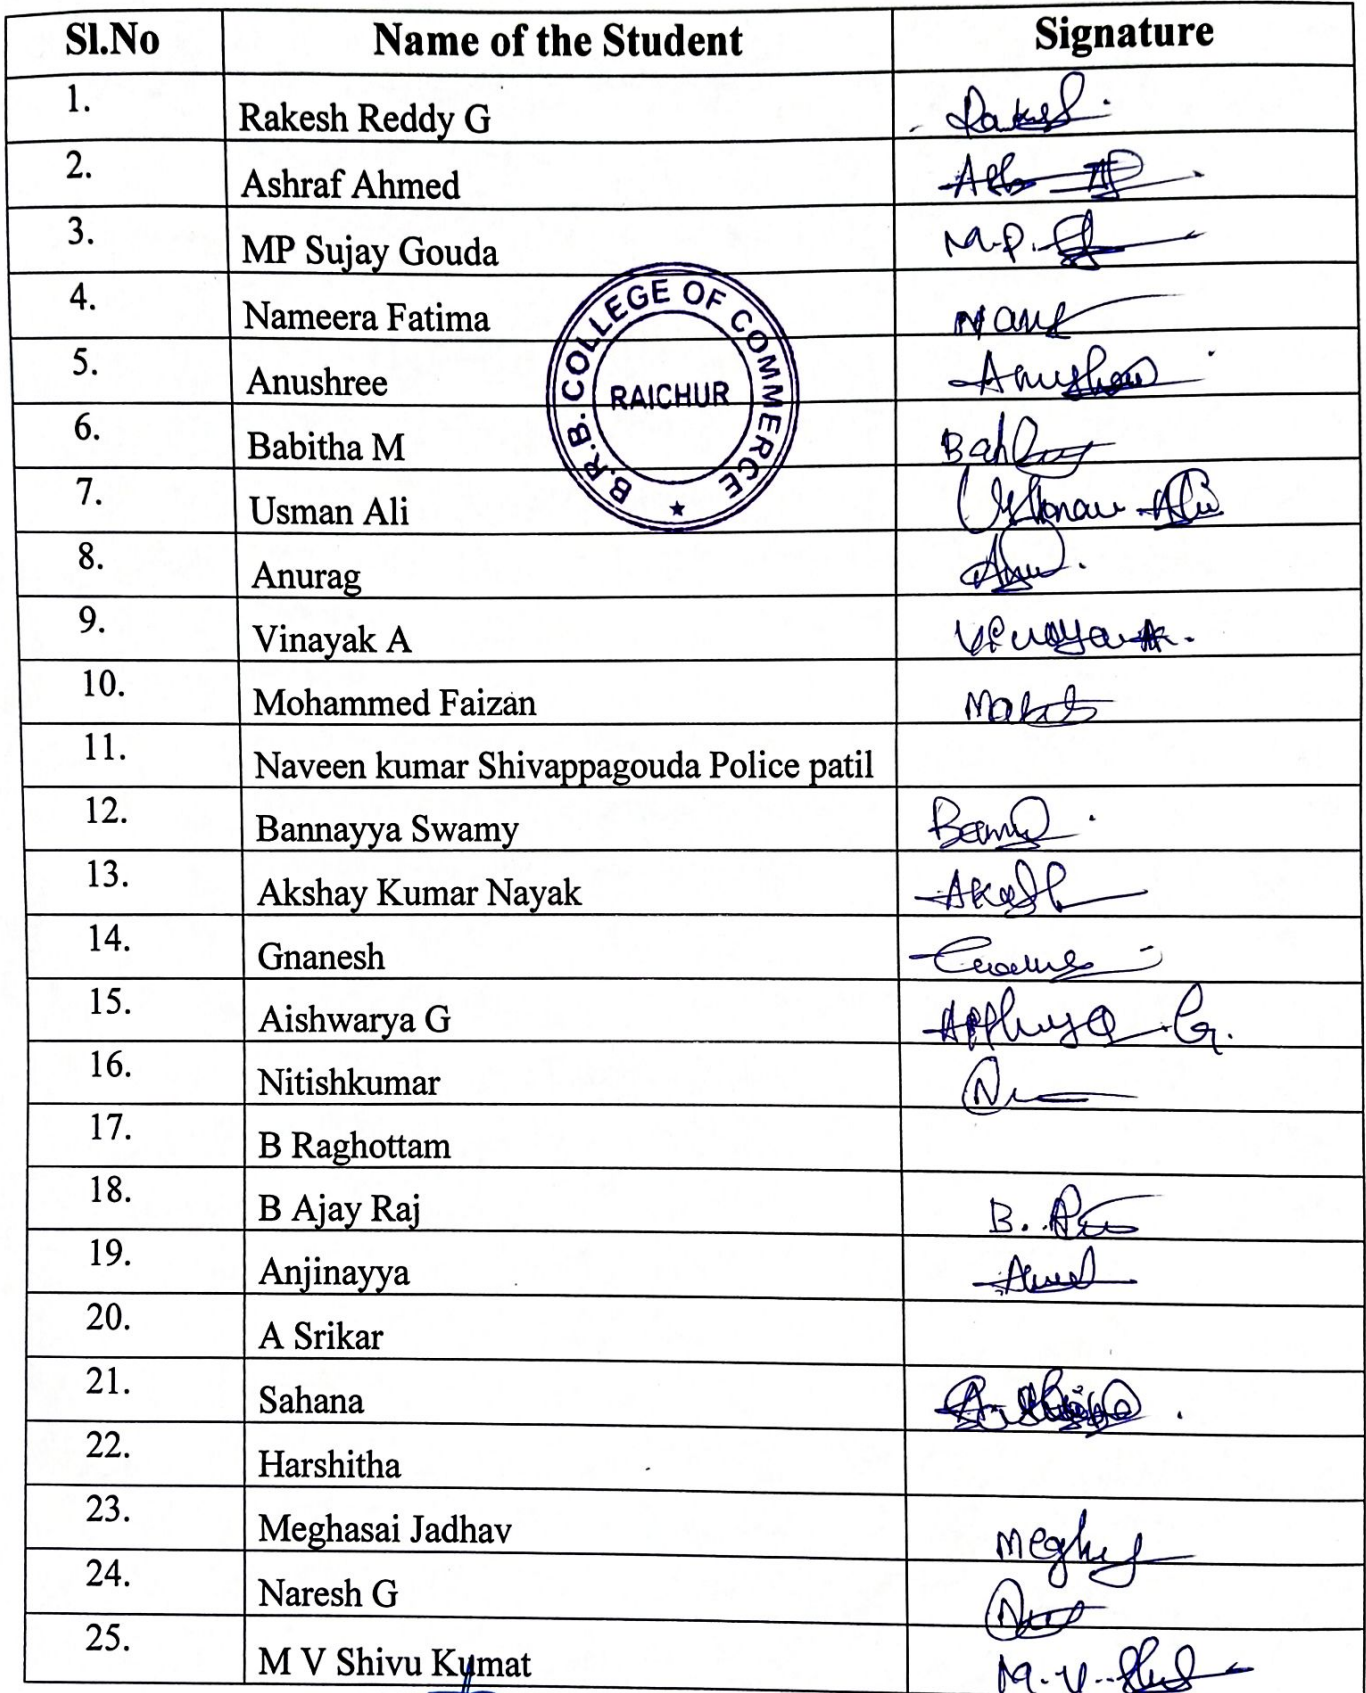 Sl.No Name of the Student Signature
1. Rakesh Reddy G Rakesh
2. Ashraf Ahmed
3. MP Sujay Gouda M.P.
4. Nameera Fatima
5. Anushree Anushree
6. Babitha M
7. Usman Ali Usman Ali
8. Anurag
9. Vinayak A Vinayak A.
10. Mohammed Faizan
11. Naveen kumar Shivappagouda Police patil
12. Bannayya Swamy
13. Akshay Kumar Nayak
14. Gnanesh
15. Aishwarya G G.
16. Nitishkumar
17. B Raghottam
18. B Ajay Raj B.
19. Anjinayya
20. A Srikar
21. Sahana
22. Harshitha
23. Meghasai Jadhav
24. Naresh G
25. M V Shivu Kumat M.V.
B.R.B. COLLEGE OF COMMERCE
RAICHUR